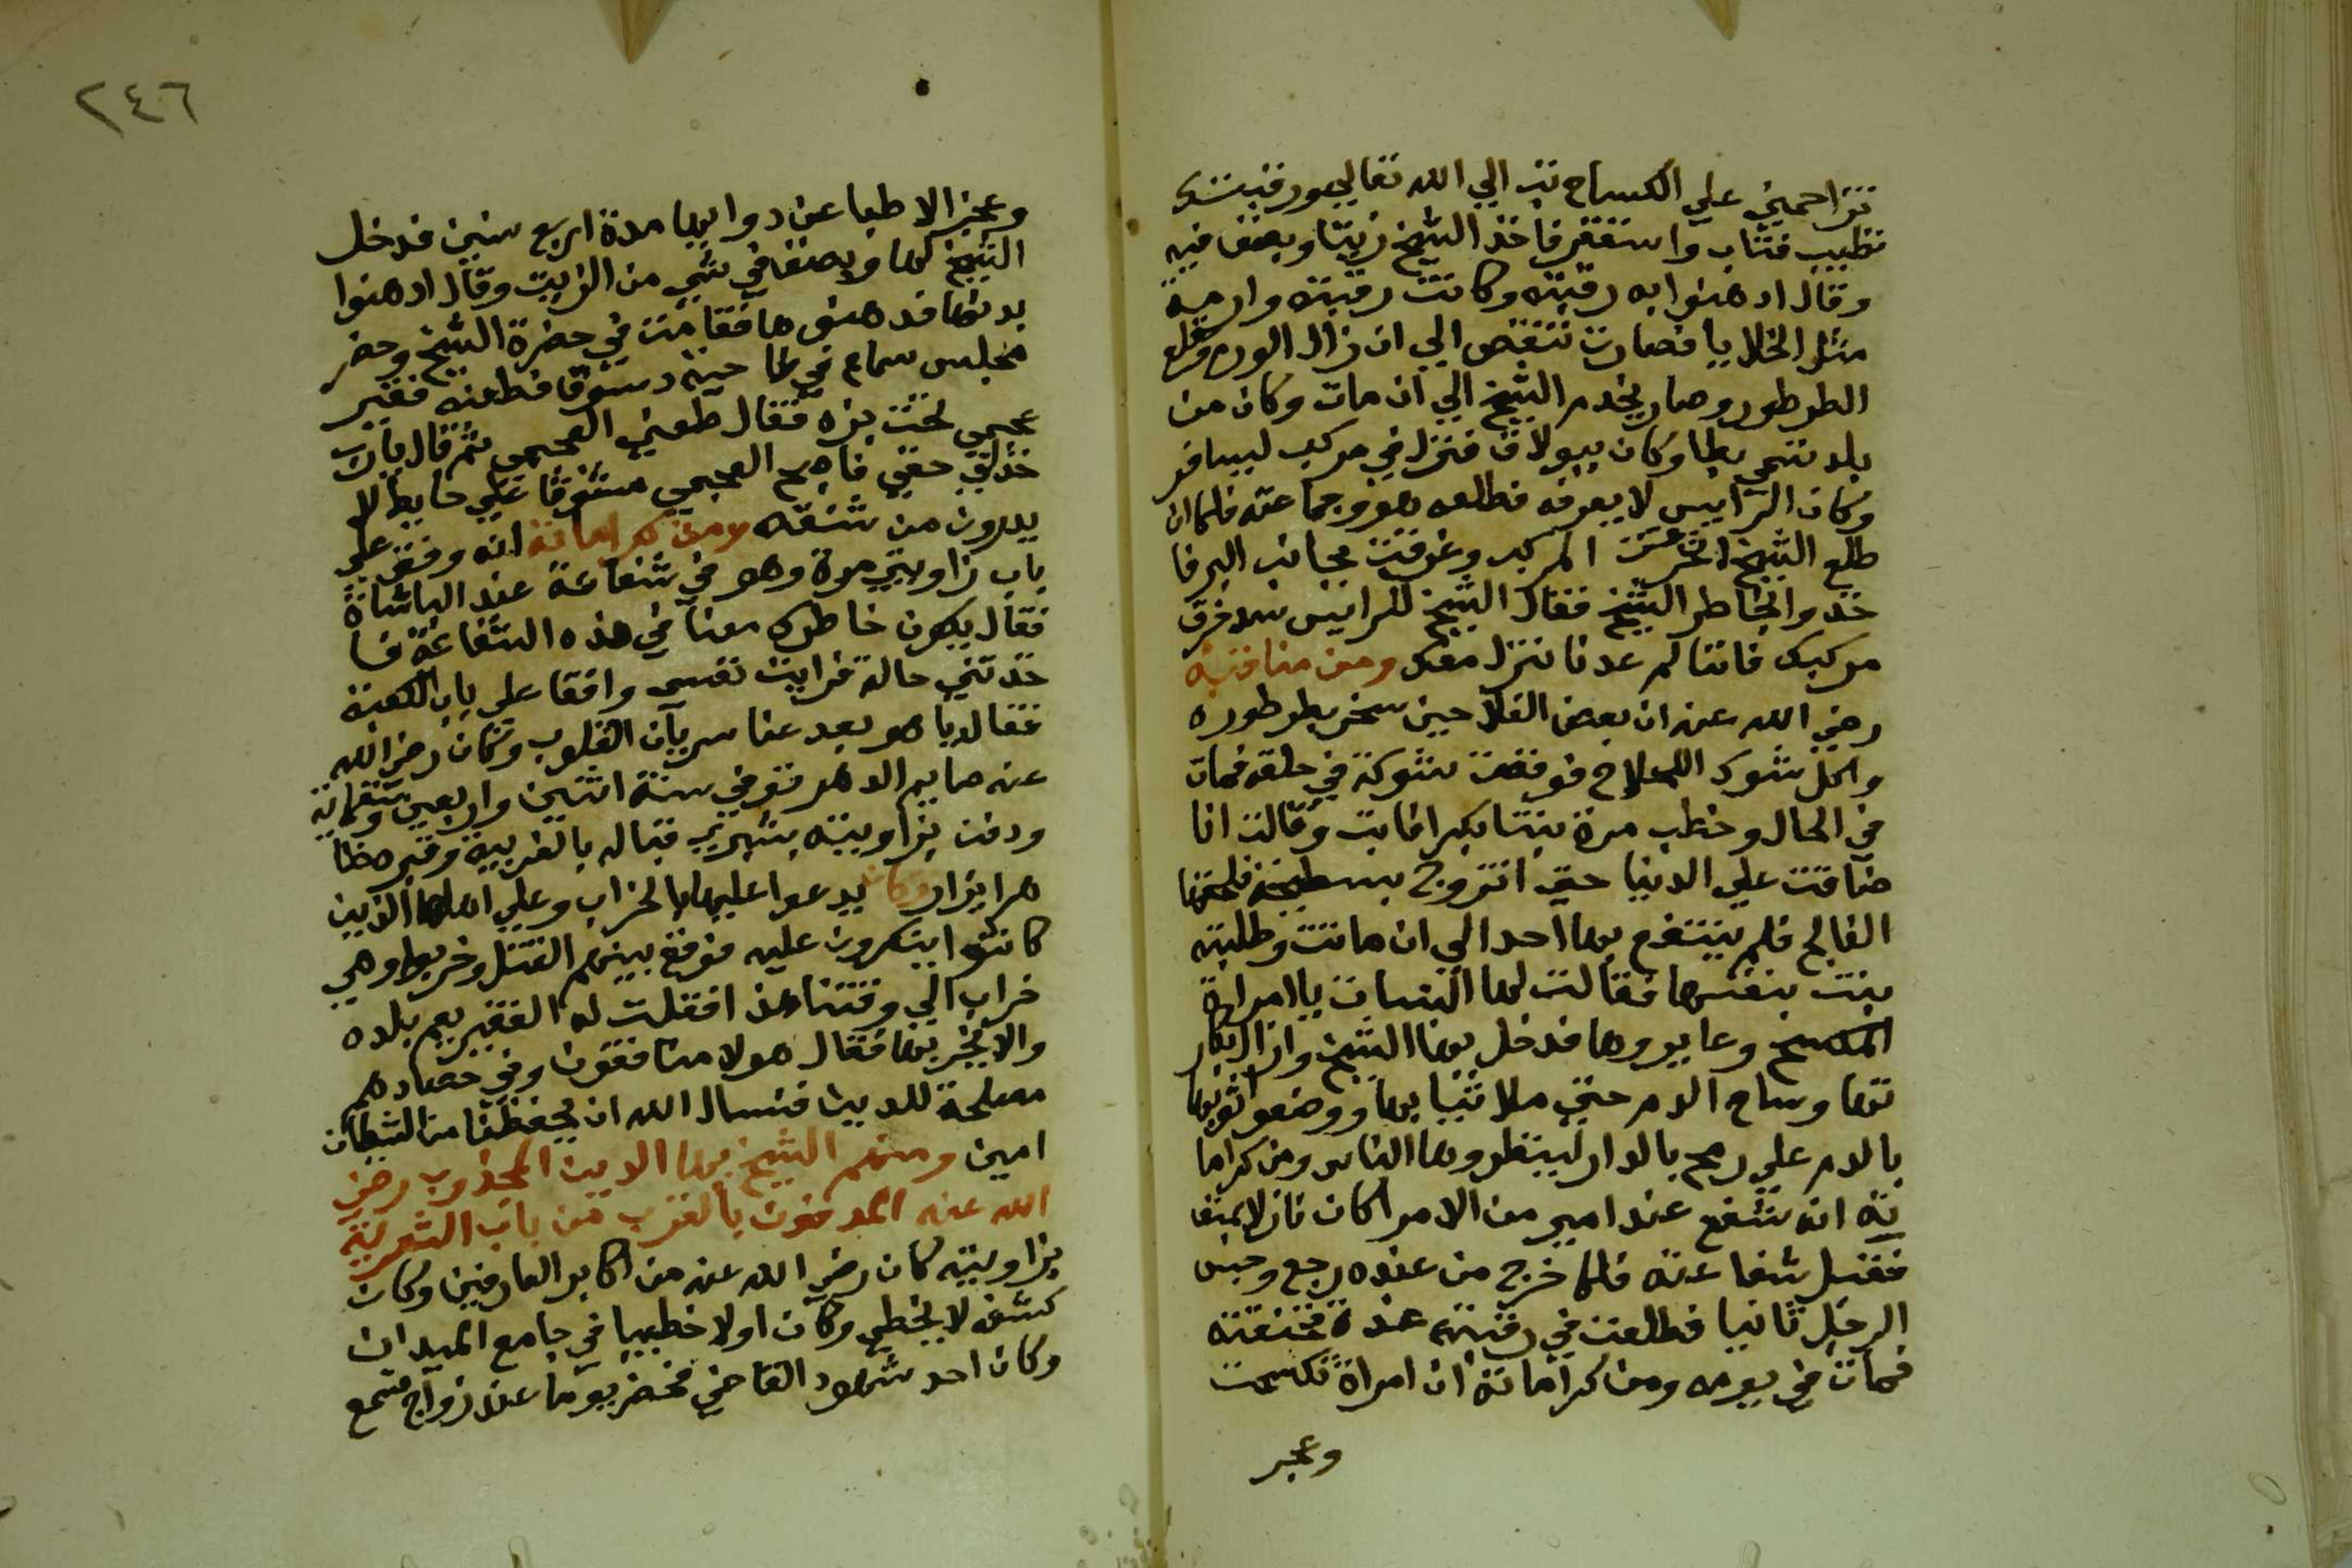 تزاحميني علي الكساح تب الي الله تعالي عود رقبتك
تطيب فتاب واستغفر فاخذ الشيخ زيتا وبصق فيه
وقال ادهنوا به رقبته وكانت رقبته وارمة
مثل الخلايا فصارت تنقص الي ان زال الورم وقلع
الطرطور وصار يخدم الشيخ الي ان مات وكان من
بلد تسمي بطا وكان ببولاق فنزل في مركب ليسافر
وكان الرايس لا يعرفه فطلعه هو وجماعته فلما ان
طلع الشيخ انخرقت المركب وغرقت بجانب البر فا
خدوا بخاطر الشيخ فقال الشيخ للرايس سد خرق
مركبك فاننا لم عدنا ننزل معك ومن مناقبه
رضي الله عنه ان بعض الفلاحين سخر بطرطوره
واكل شوك اللحلاح فوقفت شوكة في حلقه فمات
في الحال وخطب مرة بنتا بكرا فابت وقالت انا
ضاقت علي الدنيا حتي اتزوج بسطيحة فلحقها
الفالج فلم ينتفع بها احد الي ان ماتت وطلبته
بنت بنفسها فقالت لها البنات يا امراة
المكسح وعايروها فدخل بها الشيخ وازال بكار
تها وساح الدم حتي ملا ثيابها ووضعوا ثوبها
بالدم علي رمح بالدار لينظروها الناس ومن كراما
ته انه شفع عند امير من الامرا كان نازلا بمنفا
فقبل شفاعته فلما خرج من عنده رجع وحبس
الرجل ثانيا فطلعت في رقبته غدة فخنقته
فمات في يومه ومن كراماته ان امراة تكسحت
وعجز
٢٤٦
وعجز الاطبا عن دوايها مدة اربع سنين فدخل
الشيخ لها وبصق في شي من الزيت وقال ادهنوا
بدنها فدهنوها فقامت في حضرة الشيخ وحضر
مجلس سماع في ناحية دسوق فطعنه فقير
عجمي تحت بزه فقال طعني العجمي ثم قال يا رب
خذلي حقي فاصبح العجمي مشنوقا علي حايط لا
يدرون من شنقه ومن كراماته انه وقف علي
باب زاويتي مرة وهو في شفاعة عند الباشاة
فقال يكون خاطرك معنا في هذه الشفاعة فا
خدتني حالة فرايت نفسي واقفا علي باب الكعبة
فقال يا هو بعد عنا سريان القلوب وكان رضي الله
عنه صايم الدهر توفي سنة اثنين واربعين وتسعماية
ودفن بزاويته بشبريز قباله بالغربية وقبره ظا
هر ايزار وكان يدعوا عليها بالخراب وعلي اهلها الذين
كانوا ينكرون عليه فوقع بينهم القتل وخربوا وهي
خراب الي وقتنا هذا فقلت له الفقير يعم بلده
والا يخربها فقال هولا منافقون وفي حصادهم
مصلحة للدين فنسال الله ان يحفظنا من الشيطان
امين ومنهم الشيخ بها الدين المجذوب رضي
الله عنه المدفون بالقرب من باب الشعرية
بزاويته كان رضي الله عنه من اكابر العارفين وكان
كشفه لا يخطي وكان اولا خطيبا في جامع الميدان
وكان احد شهود القاضي فحضر يوما عند زواج فسمع